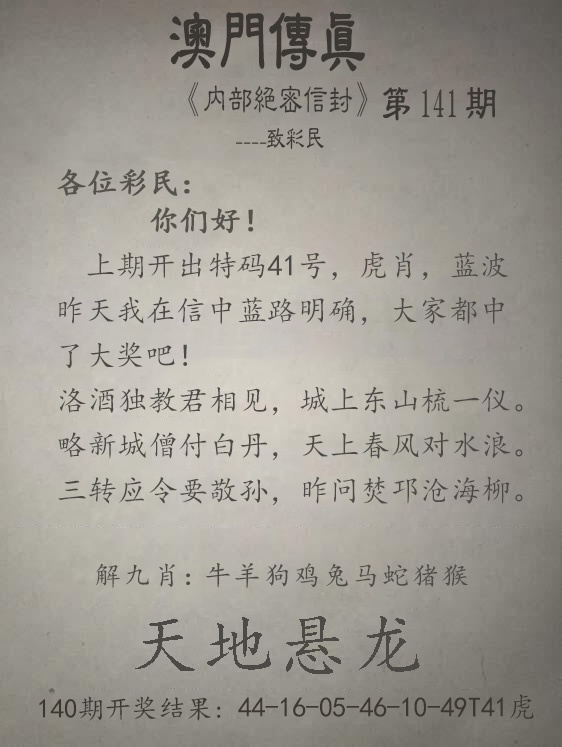 澳門傳眞
《内部絕密信封》第141期
----致彩民
各位彩民：
你们好！
上期开出特码41号，虎肖，蓝波
昨天我在信中蓝路明确，大家都中
了大奖吧！
洛酒独教君相见，城上东山梳一仪。
略新城僧付白丹，天上春风对水浪。
三转应令要敬孙，昨问焚邛沧海柳。
解九肖：牛羊狗鸡兔马蛇猪猴
天地悬龙
140期开奖结果：44-16-05-46-10-49T41虎